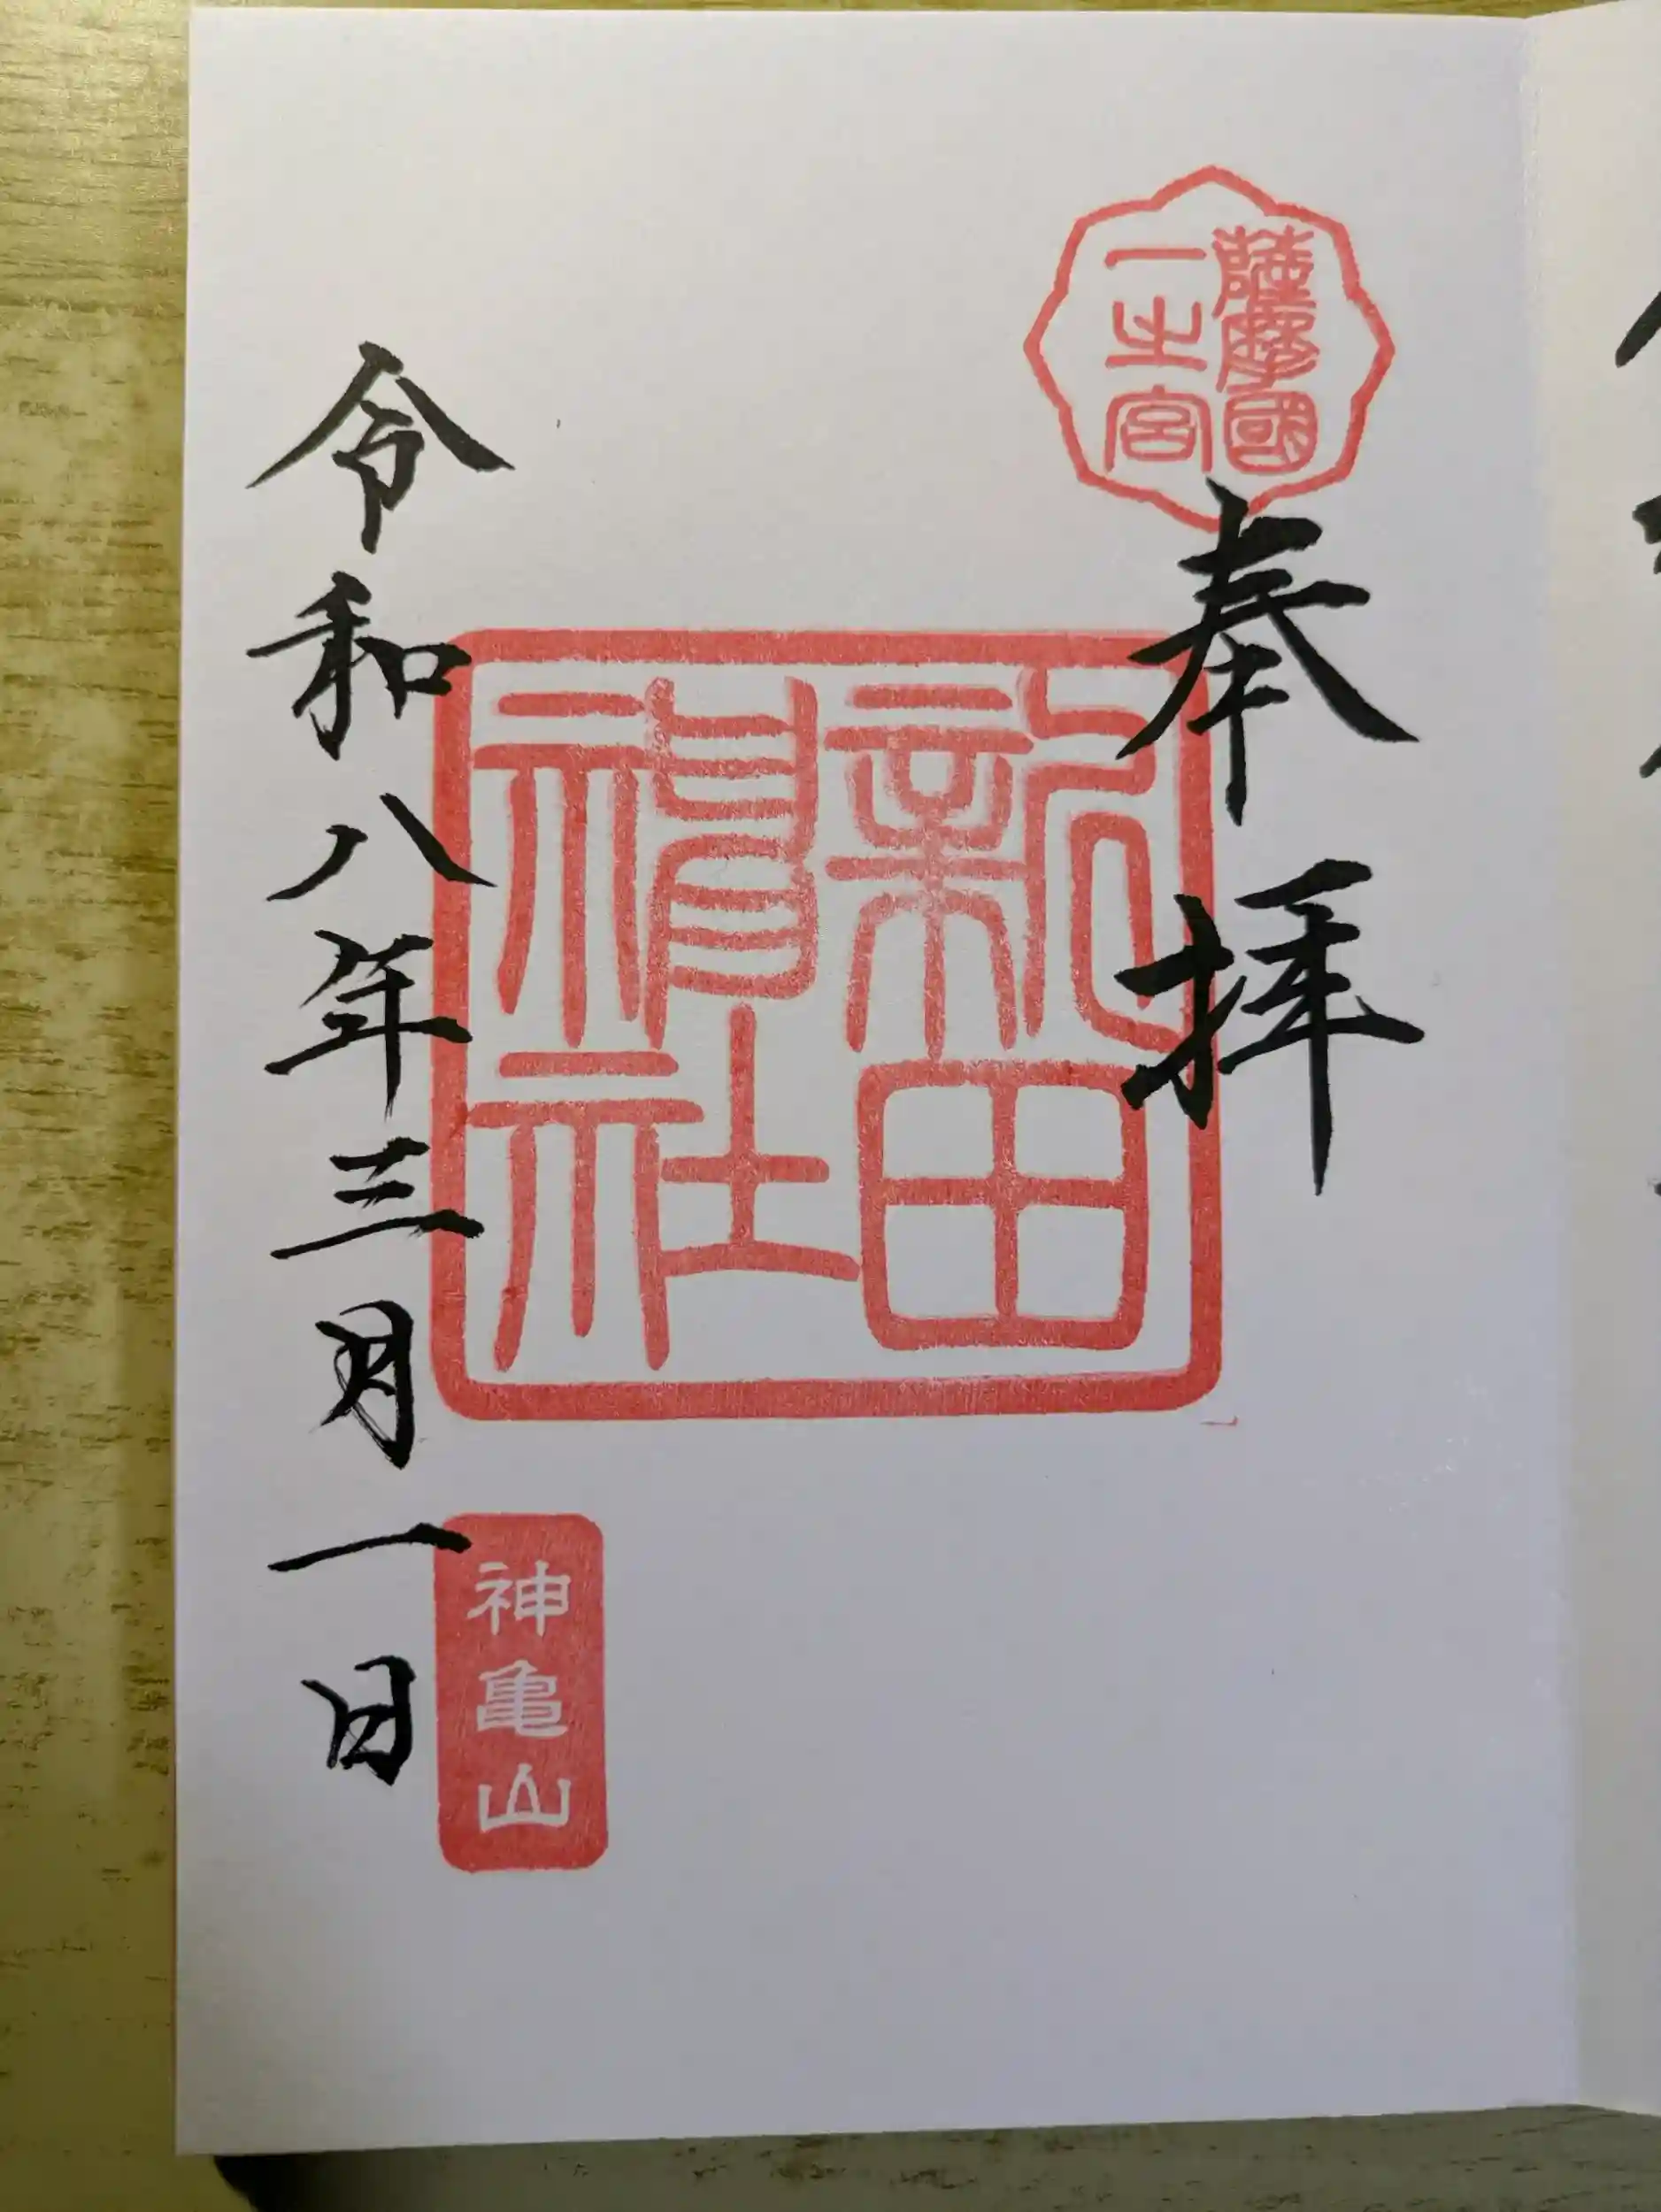 薩摩國
一之宮
奉拝
新田
神社
神亀山
令和八年三月一日